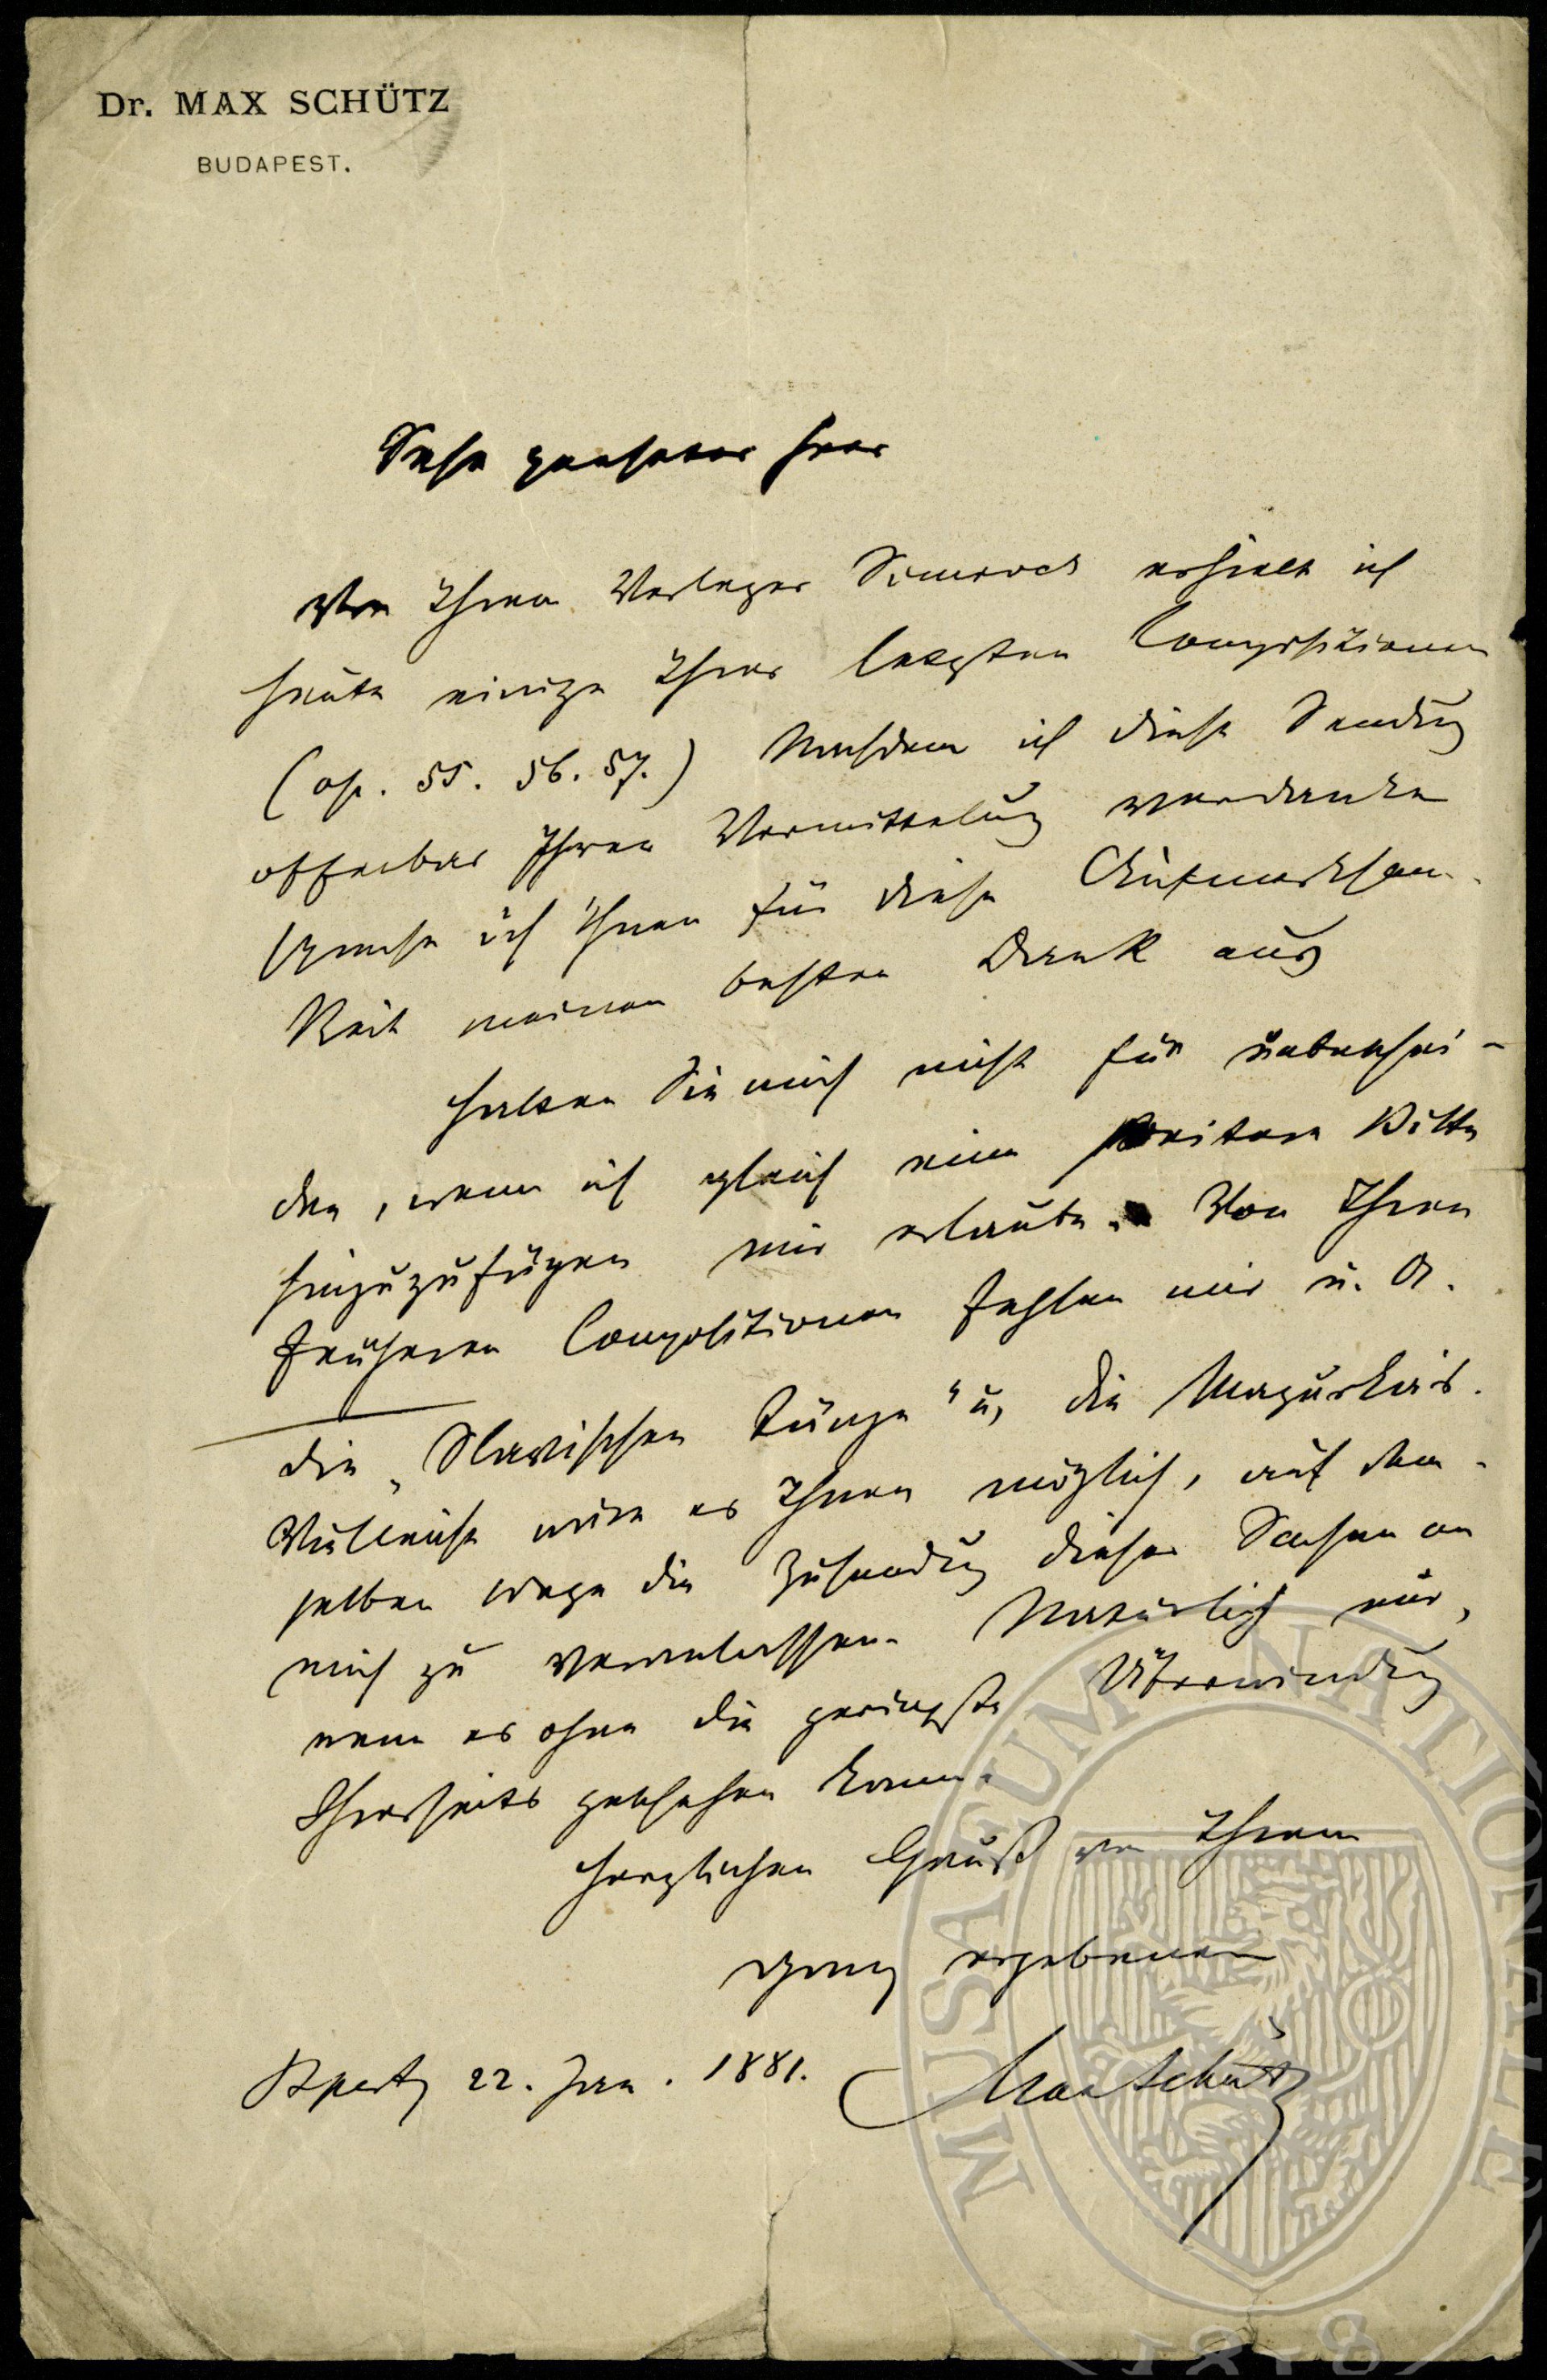 Dr. MAX SCHÜTZ
BUDAPEST.
Sehr geehrter Herr
Von Ihrem Verleger Simrock erhielt ich
heute einige Ihrer letzten Compositionen
(op. 55. 56. 57.) Nachdem ich diese Sendung
offenbar Ihrer Vermittelung verdanke
spreche ich Ihnen für diese Aufmerksam-
keit meinen besten Dank aus
Halten Sie mich nicht für unbeschei-
den, wenn ich gleich eine weitere Bitte
hinzuzufügen mir erlaube. Von Ihren
früheren Compositionen fehlen mir u. A.
die „Slavischen Tänze" u, die Mazurkas.
Vielleicht wäre es Ihnen möglich, auf dem-
selben Wege die Zusendung dieser Sachen an
mich zu veranlassen. Natürlich nur,
wenn es ohne die geringste Überwindung
Ihrerseits geschehen kann.
Herzlichen Gruß von Ihrem
ganz ergebenen
Bpest, 22. Jan. 1881. Max Schütz
MUSAEUM NATIONALE
1818